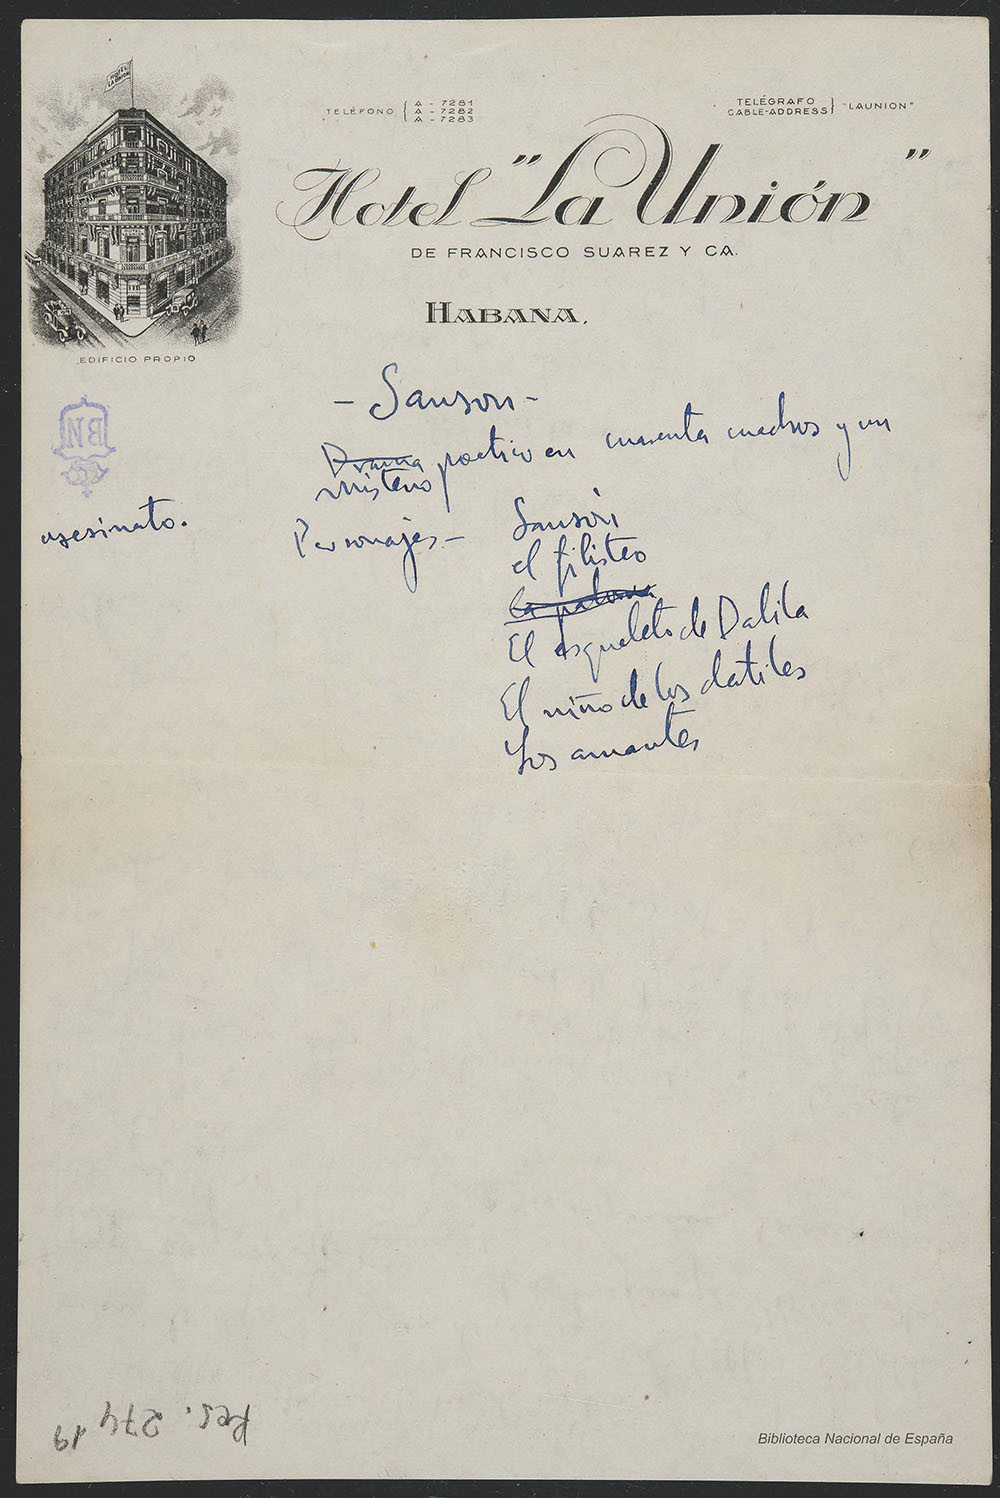 HOTEL
LA UNION
TELÉFONO { A - 7281
A - 7282
A - 7283
TELÉGRAFO
CABLE-ADDRESS } "LAUNION"
Hotel "La Unión"
DE FRANCISCO SUAREZ Y CA.
HABANA,
EDIFICIO PROPIO
BN
- Sanson -
Drama poetico en cuarenta cuadros y un
misterio
asesinato.
Personajes - Sansón
el filisteo
la paloma
El esqueleto de Dalila
El niño de los datiles
Los amantes
Res. 274
19
Biblioteca Nacional de España